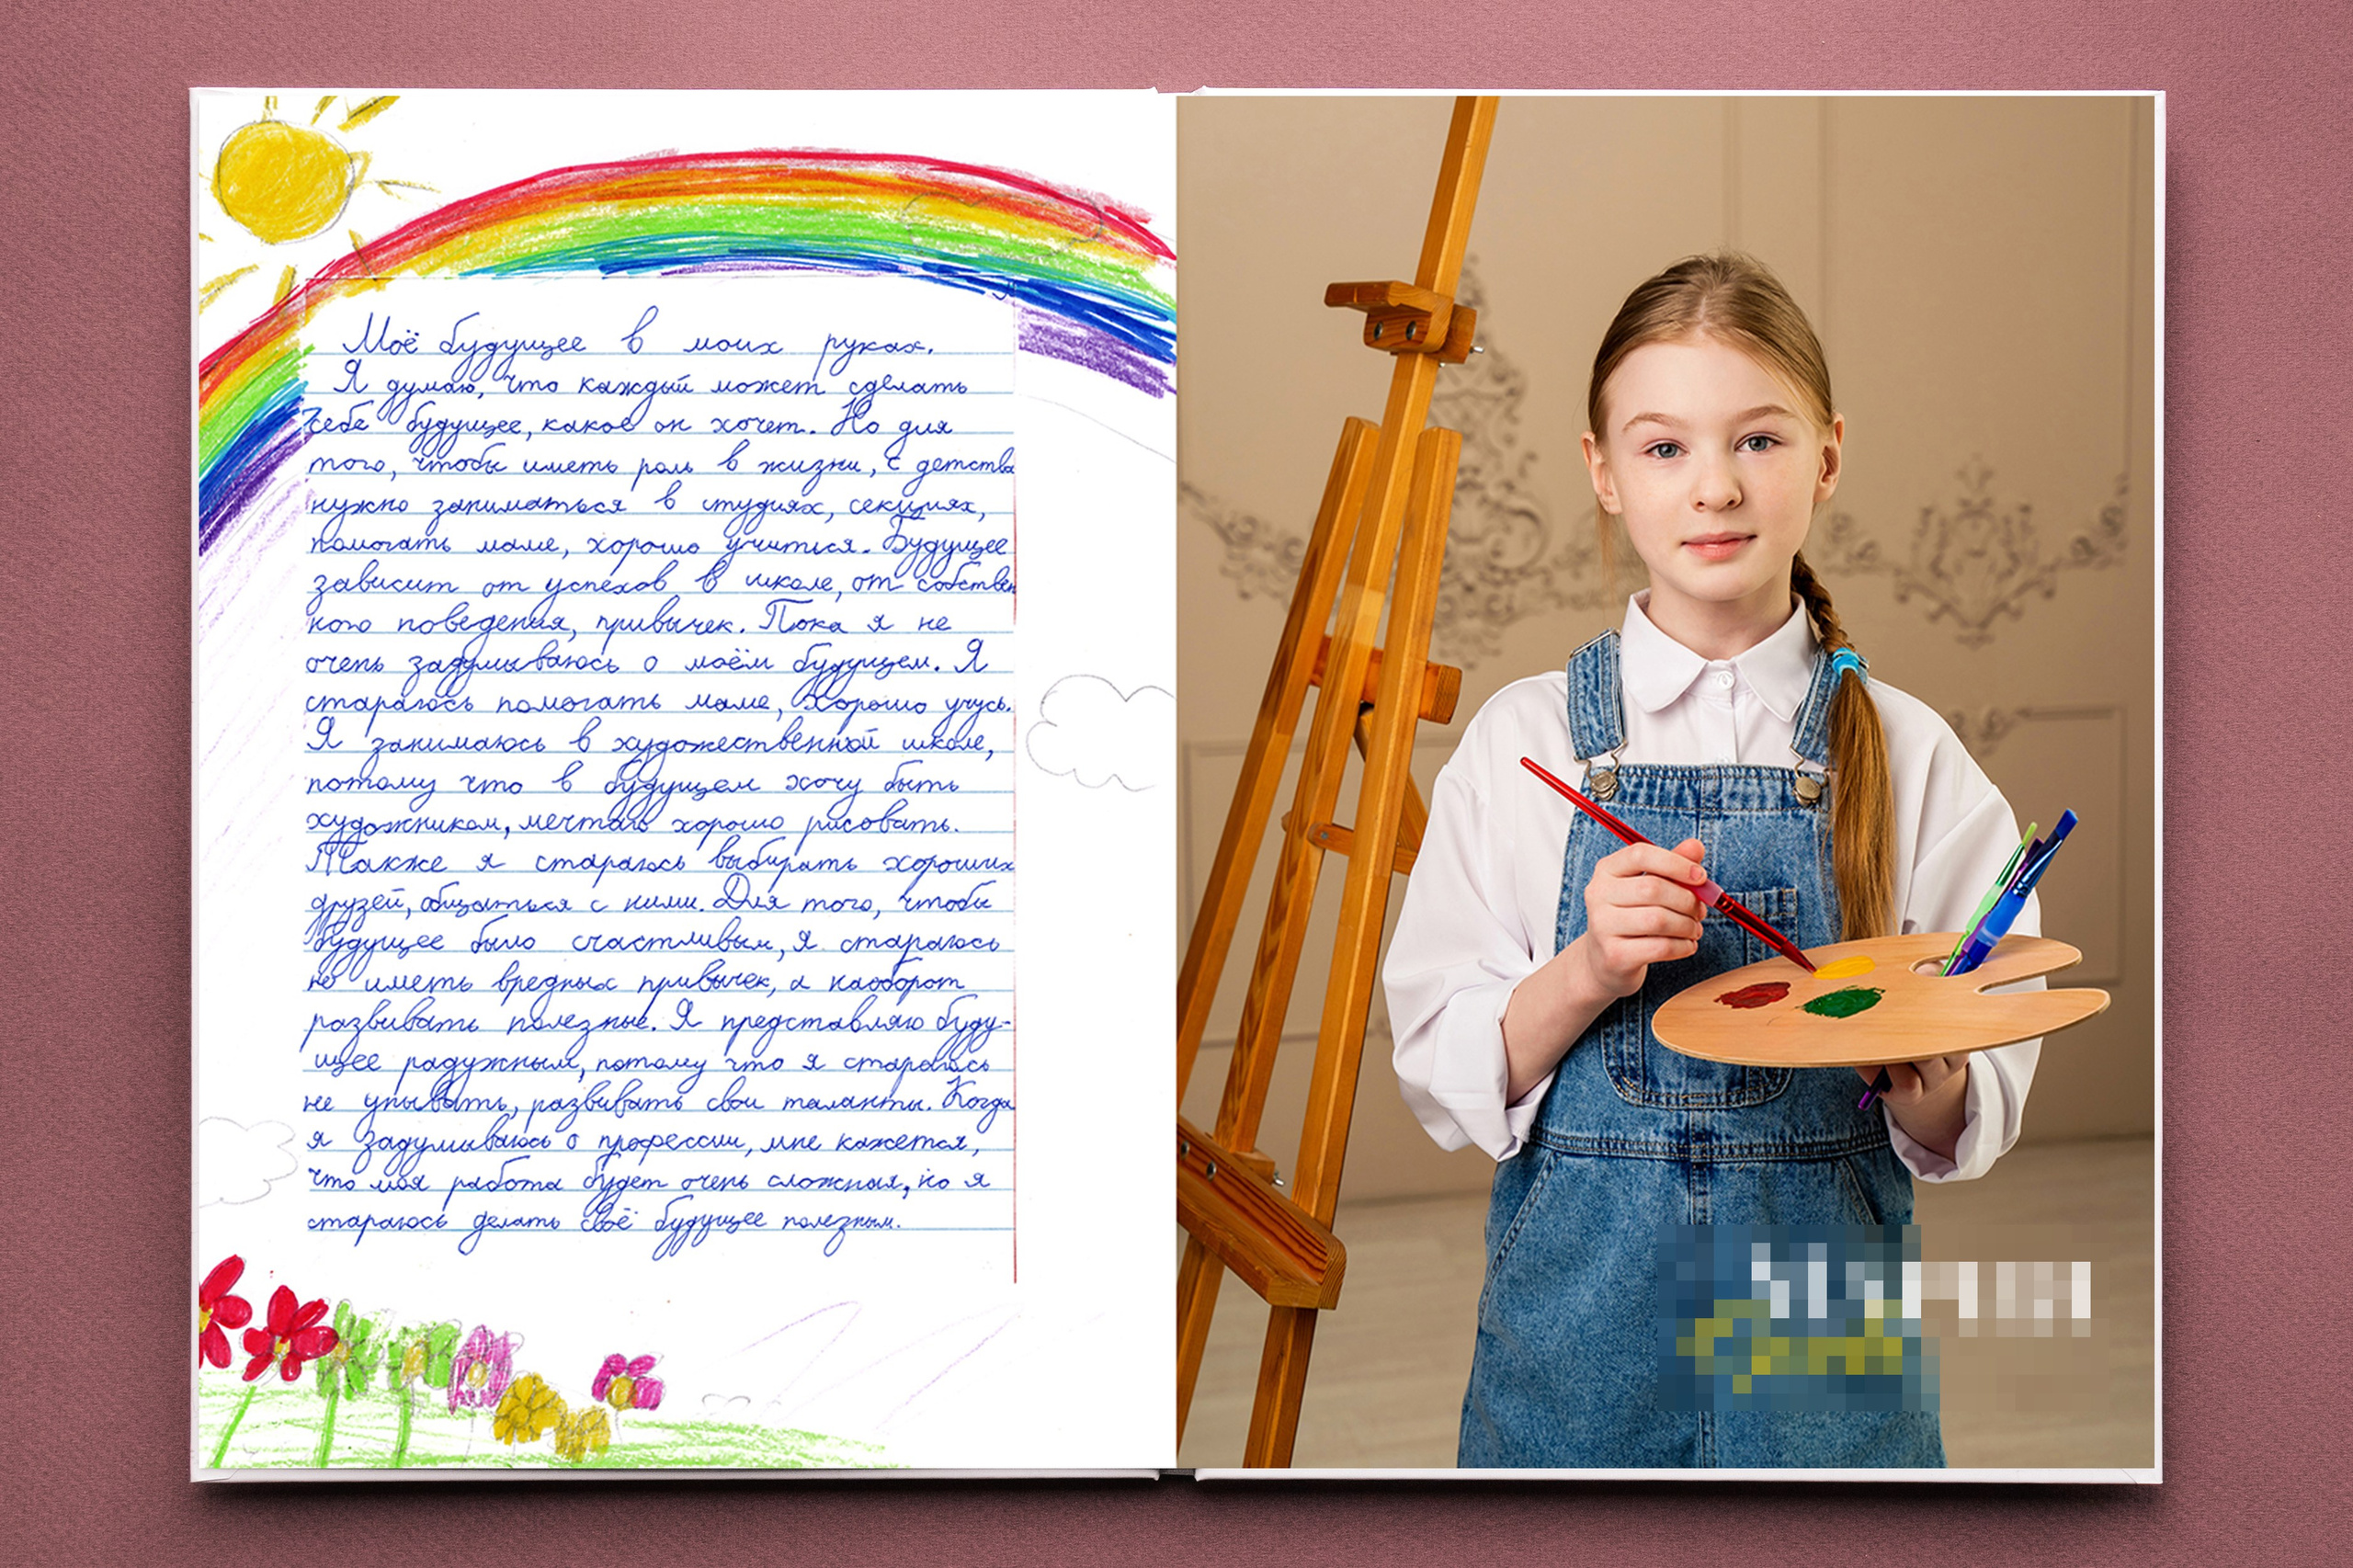 Моё будущее в моих руках.
Я думаю, что каждый может сделать
себе будущее, какое он хочет. Но для
того, чтобы иметь роль в жизни, с детства
нужно заниматься в студиях, секциях,
помогать маме, хорошо учиться. Будущее
зависит от успехов в школе, от собствен
ного поведения, привычек. Пока я не
очень задумываюсь о моём будущем. Я
стараюсь помогать маме, хорошо учусь.
Я занимаюсь в художественной школе,
потому что в будущем хочу быть
художником, мечтаю хорошо рисовать.
Также я стараюсь выбирать хороших
друзей, общаться с ними. Для того, чтобы
будущее было счастливым, я стараюсь
не иметь вредных привычек, а наоборот
развивать полезные. Я представляю буду-
щее радужным, потому что я стараюсь
не унывать, развивать свои таланты. Когда
я задумываюсь о профессии, мне кажется,
что моя работа будет очень сложная, но я
стараюсь делать своё будущее полезным.